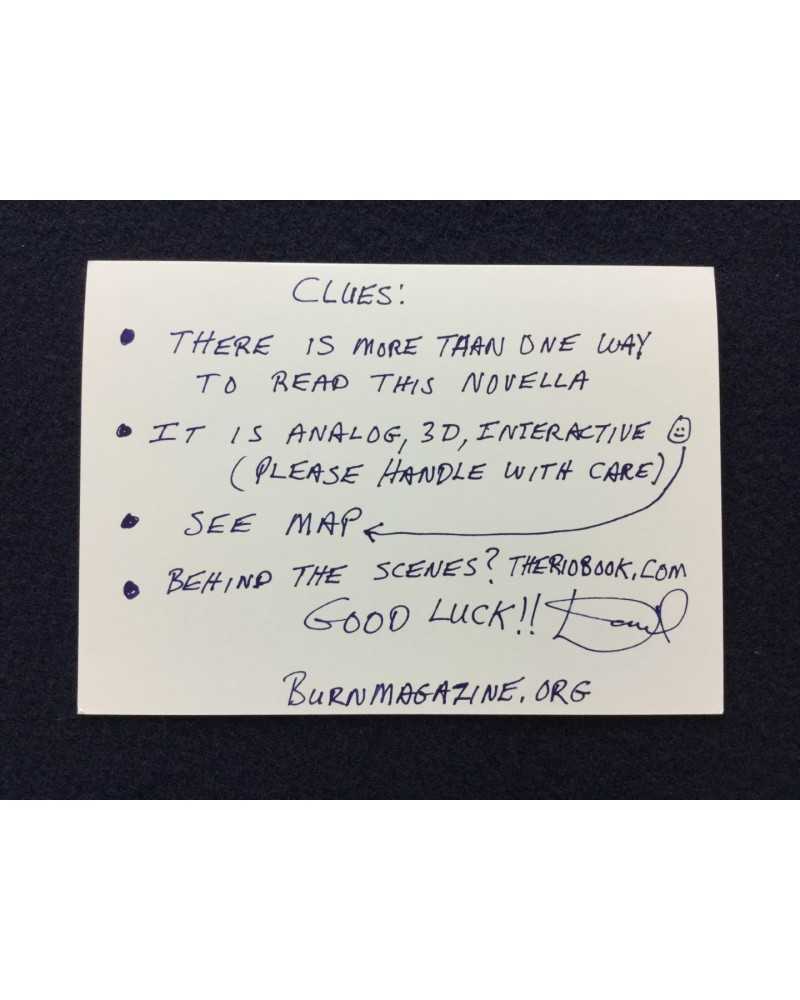 CLUES:
• THERE IS MORE THAN ONE WAY
TO READ THIS NOVELLA
• IT IS ANALOG, 3D, INTERACTIVE
(PLEASE HANDLE WITH CARE)
• SEE MAP
• BEHIND THE SCENES? THERIOBOOK.COM
GOOD LUCK!!
BURNMAGAZINE.ORG